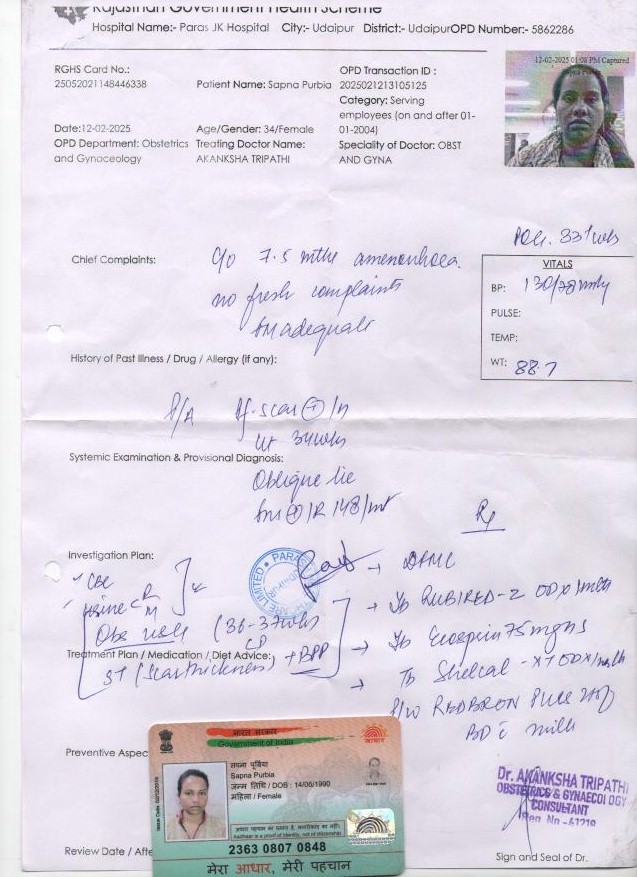 Rajasthan Government Health Scheme
Hospital Name:- Paras JK Hospital City:- Udaipur District:- UdaipurOPD Number:- 5862286
RGHS Card No.:
25052021148446338
Patient Name: Sapna Purbia
OPD Transaction ID :
2025021213105125
Category: Serving
employees (on and after 01-
01-2004)
12-02-2025 01:08 PM Captured
Date:12-02-2025
OPD Department: Obstetrics
and Gynaceology
Age/Gender: 34/Female
Treating Doctor Name:
AKANKSHA TRIPATHI
Speciality of Doctor: OBST
AND GYNA
POG. 33+1 wks
Chief Complaints:
c/o 7.5 mths amenorrhoea.
no fresh complaints
fm adequate
VITALS
BP: 130/78 mmHg
PULSE:
TEMP:
WT: 88.7
History of Past Illness / Drug / Allergy (if any):
P/A Pf. scar (+) /n
ut 34wks
Systemic Examination & Provisional Diagnosis:
Oblique lie
fhs (+) /R 148/mt
Rx
Investigation Plan:
CBC
Urine C R M
Obs USG (36-37wks)
CD
Treatment Plan / Medication / Diet Advice:
ST (Scar thickness) + BPP
PARAS
LIMITED
DFMC
Tb RUBIRED-Z OD x 1mth
Tb Ecosprin 75mg HS
Tb Shelcal-XT OD x 1mth
P/w REDBRON PLUS 2tsf
BD c milk
Preventive Aspec
भारत सरकार
Government of India
आधार
Issue Date: 02/12/2016
सपना पूर्बिया
Sapna Purbia
जन्म तिथि / DOB : 14/06/1990
महिला / Female
आधार पहचान का प्रमाण है, नागरिकता का नहीं।
Aadhaar is a proof of identity, not of citizenship
2363 0807 0848
मेरा आधार, मेरी पहचान
Dr. AKANKSHA TRIPATHI
OBSTETRICS & GYNAECOLOGY
CONSULTANT
Reg. No.-41219
Review Date / Afte
Sign and Seal of Dr.